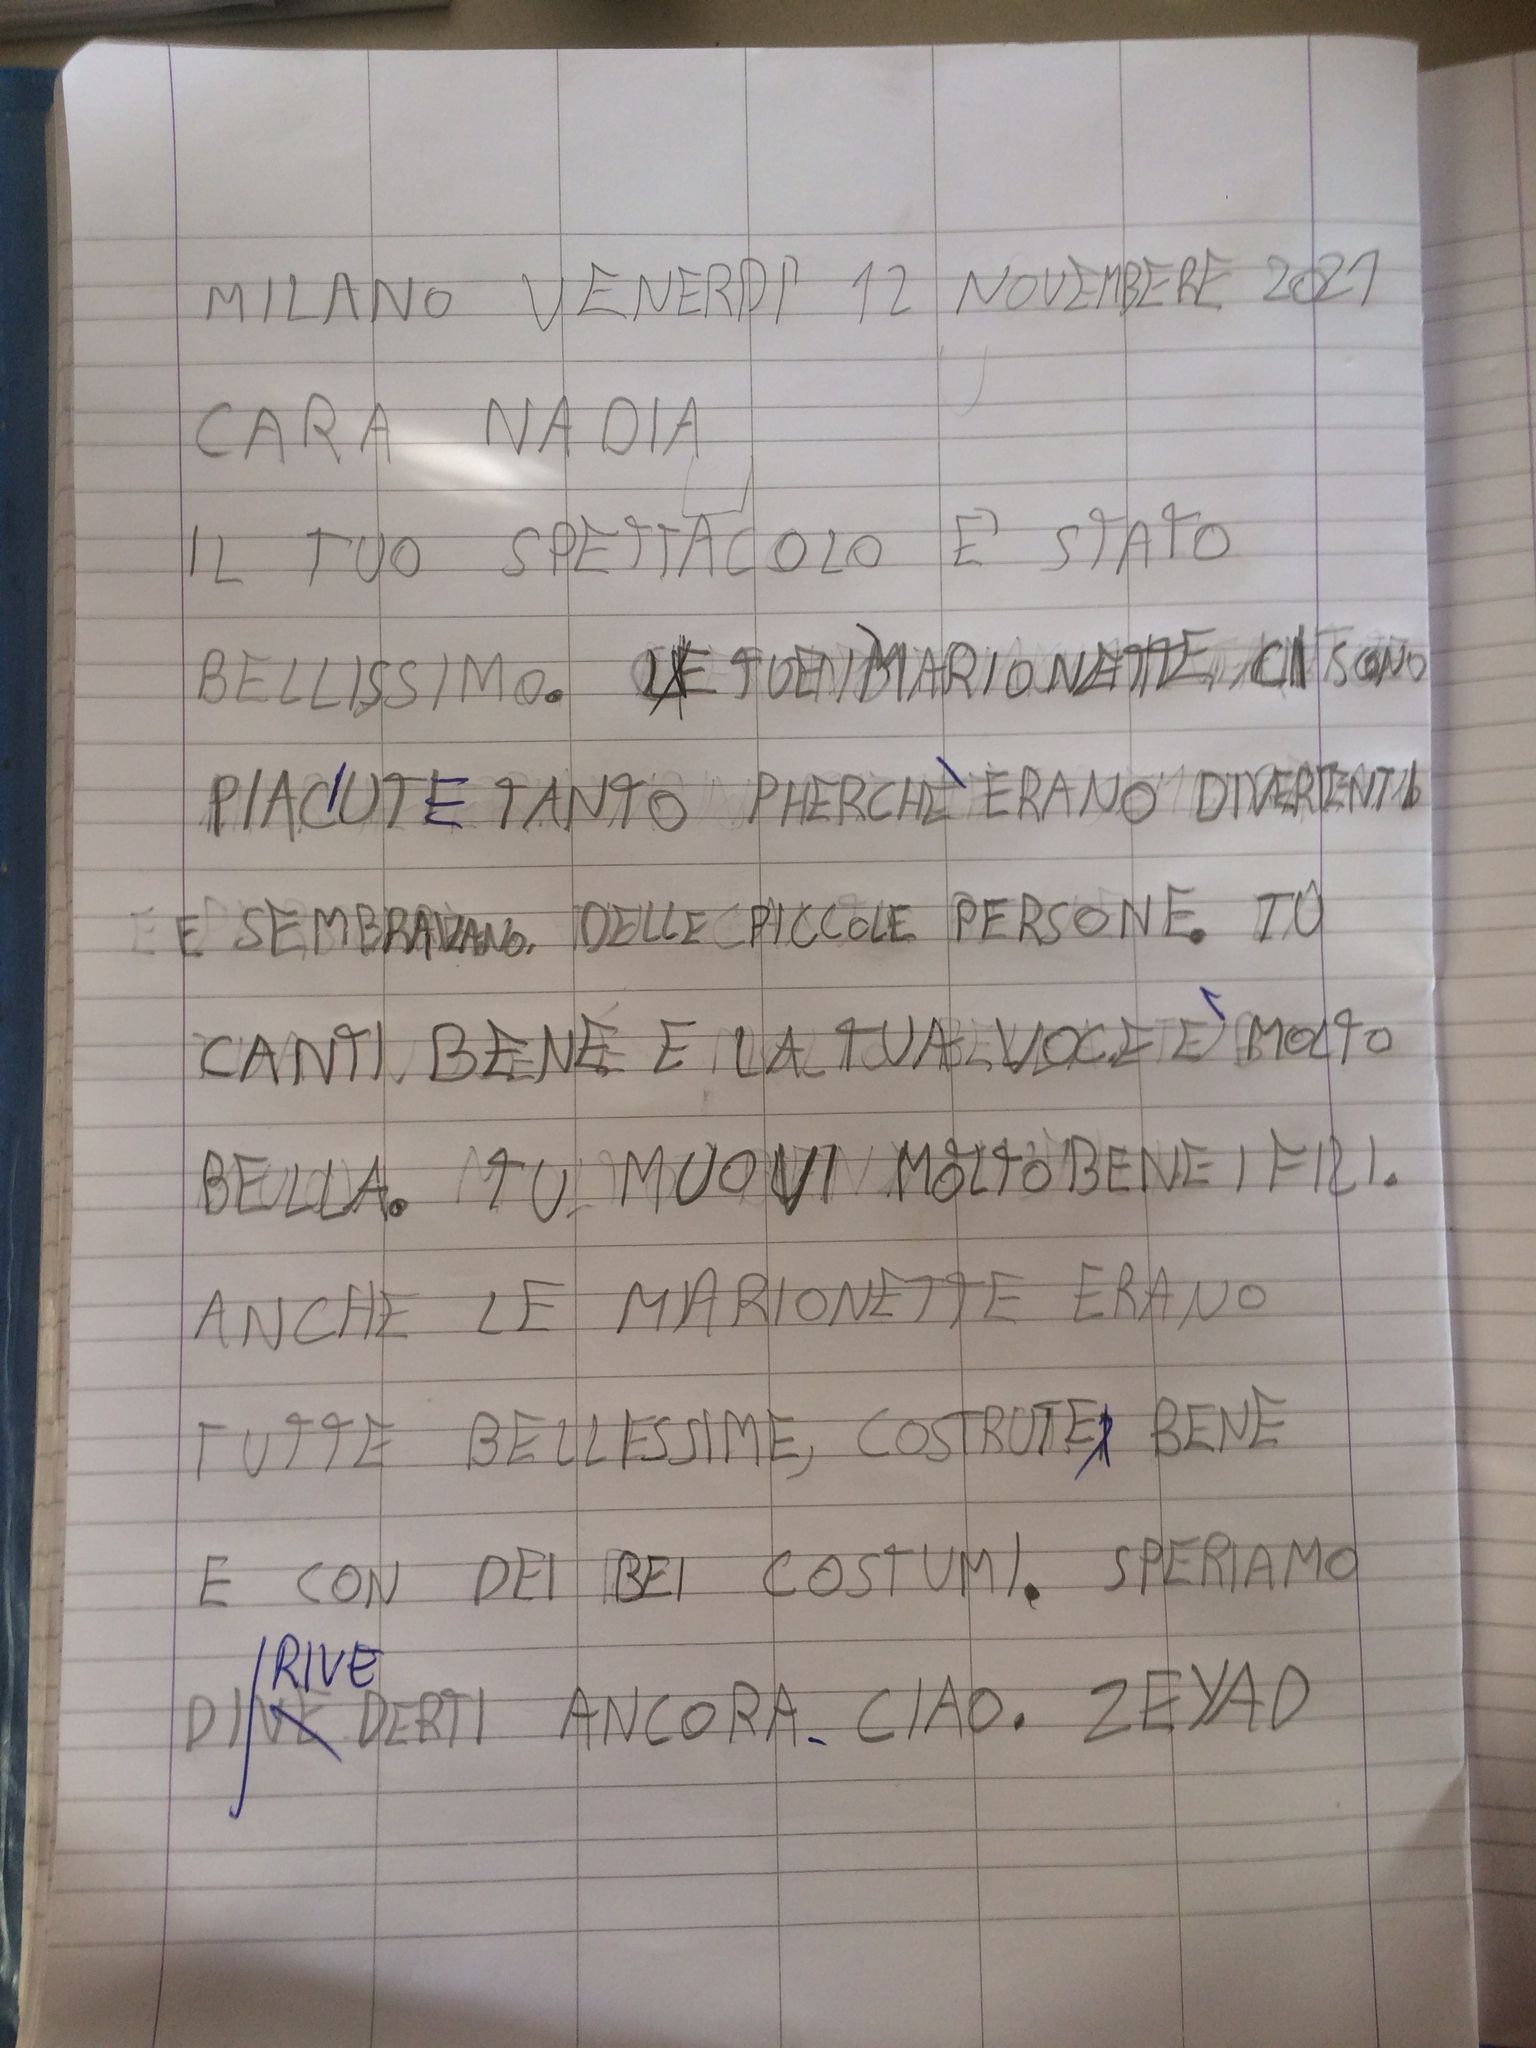 MILANO VENERDI' 12 NOVEMBERE 2021
CARA NADIA
IL TUO SPETTACOLO E' STATO
BELLISSIMO. LE TUE MARIONETTE CI SONO
PIACIUTE TANTO PHERCHÈ ERANO DIVERTENTI
E SEMBRAVANO. DELLE PICCOLE PERSONE. TU
CANTI BENE E LA TUA VOCE È MOLTO
BELLA. TU MUOVI MOLTO BENE I FILI.
ANCHE LE MARIONETTE ERANO
TUTTE BELLESSIME, COSTRUTE, BENE
E CON DEI BEI COSTUMI. SPERIAMO
RIVE
DI VE DERTI ANCORA. CIAO. ZEYAD